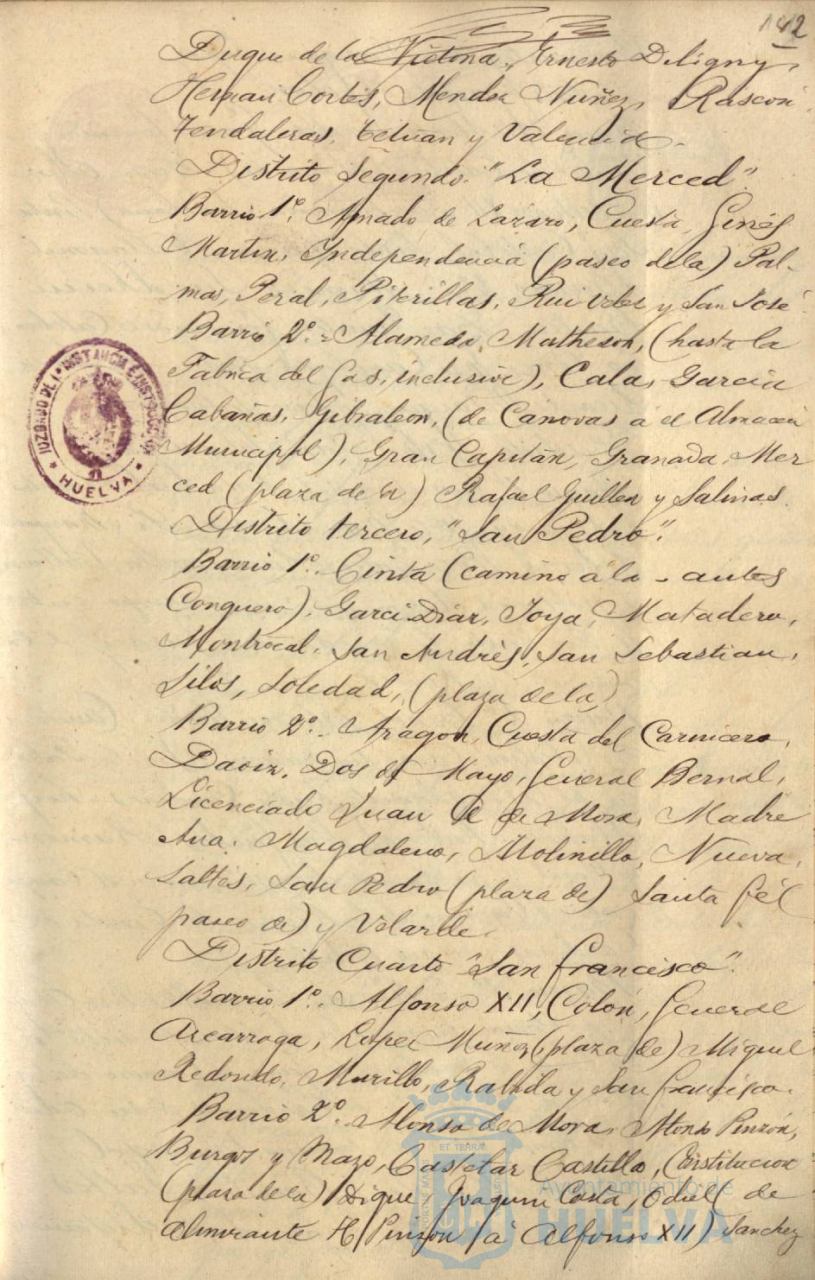 142
Duque de la Victoria, Ernesto Deligny,
Hernan Cortés, Mendez Nuñez, Rascón
Tendaleras, Tetuan y Valencia.
Distrito Segundo. "La Merced".
Barrio 1º. Amado de Lazaro, Cuesta, Ginés
Martin, Independencia (paseo dela) Pal-
mas, Peral, Piterillas, Rui Velez y San José.
Barrio 2º.= Alameda, Matheson, (hasta la
Fabrica del Gas, inclusive), Cala, Garcia
Cabañas, Gibraleon, (de Canovas á el Almacen
Municipal), Gran Capitán, Granada, Mer
ced (plaza de la) Rafael Guillen y Salinas.
Distrito tercero, "San Pedro".
Barrio 1º. Cinta (camino á la - antes
Conquero), Garci Diaz, Joya, Matadero,
Montrocal, San Andrès, San Sebastian,
Silos, Soledad, (plaza de la)
Barrio 2º. Aragon, Cuesta del Carnicero,
Daoiz, Dos de Mayo, General Bernal,
Licenciado Juan A de Mora, Madre
Ana, Magdalena, Molinillo, Nueva,
Saltés, San Pedro (plaza de) Santa Fé(
paseo de) y Velarde.
Distrito Cuarto "San Francisco".
Barrio 1º. Alfonso XII, Colón, General
Azcarraga, Lopez Muñoz (plaza de) Miguel
Redondo, Murillo, Rabida y San Francisco.
Barrio 2º. Alonso de Mora, Alonso Pinzón,
Burgos y Mazo, Castelar Castillo, Constitucion
(plaza de la) Dique Joaquin Costa, Odiel (de
almirante H Pinzon á Alfonso XII) Sanchez
JUZGADO DE 1ª INSTANCIA E INSTRUCCION
HUELVA
Ayuntamiento de
HUELVA